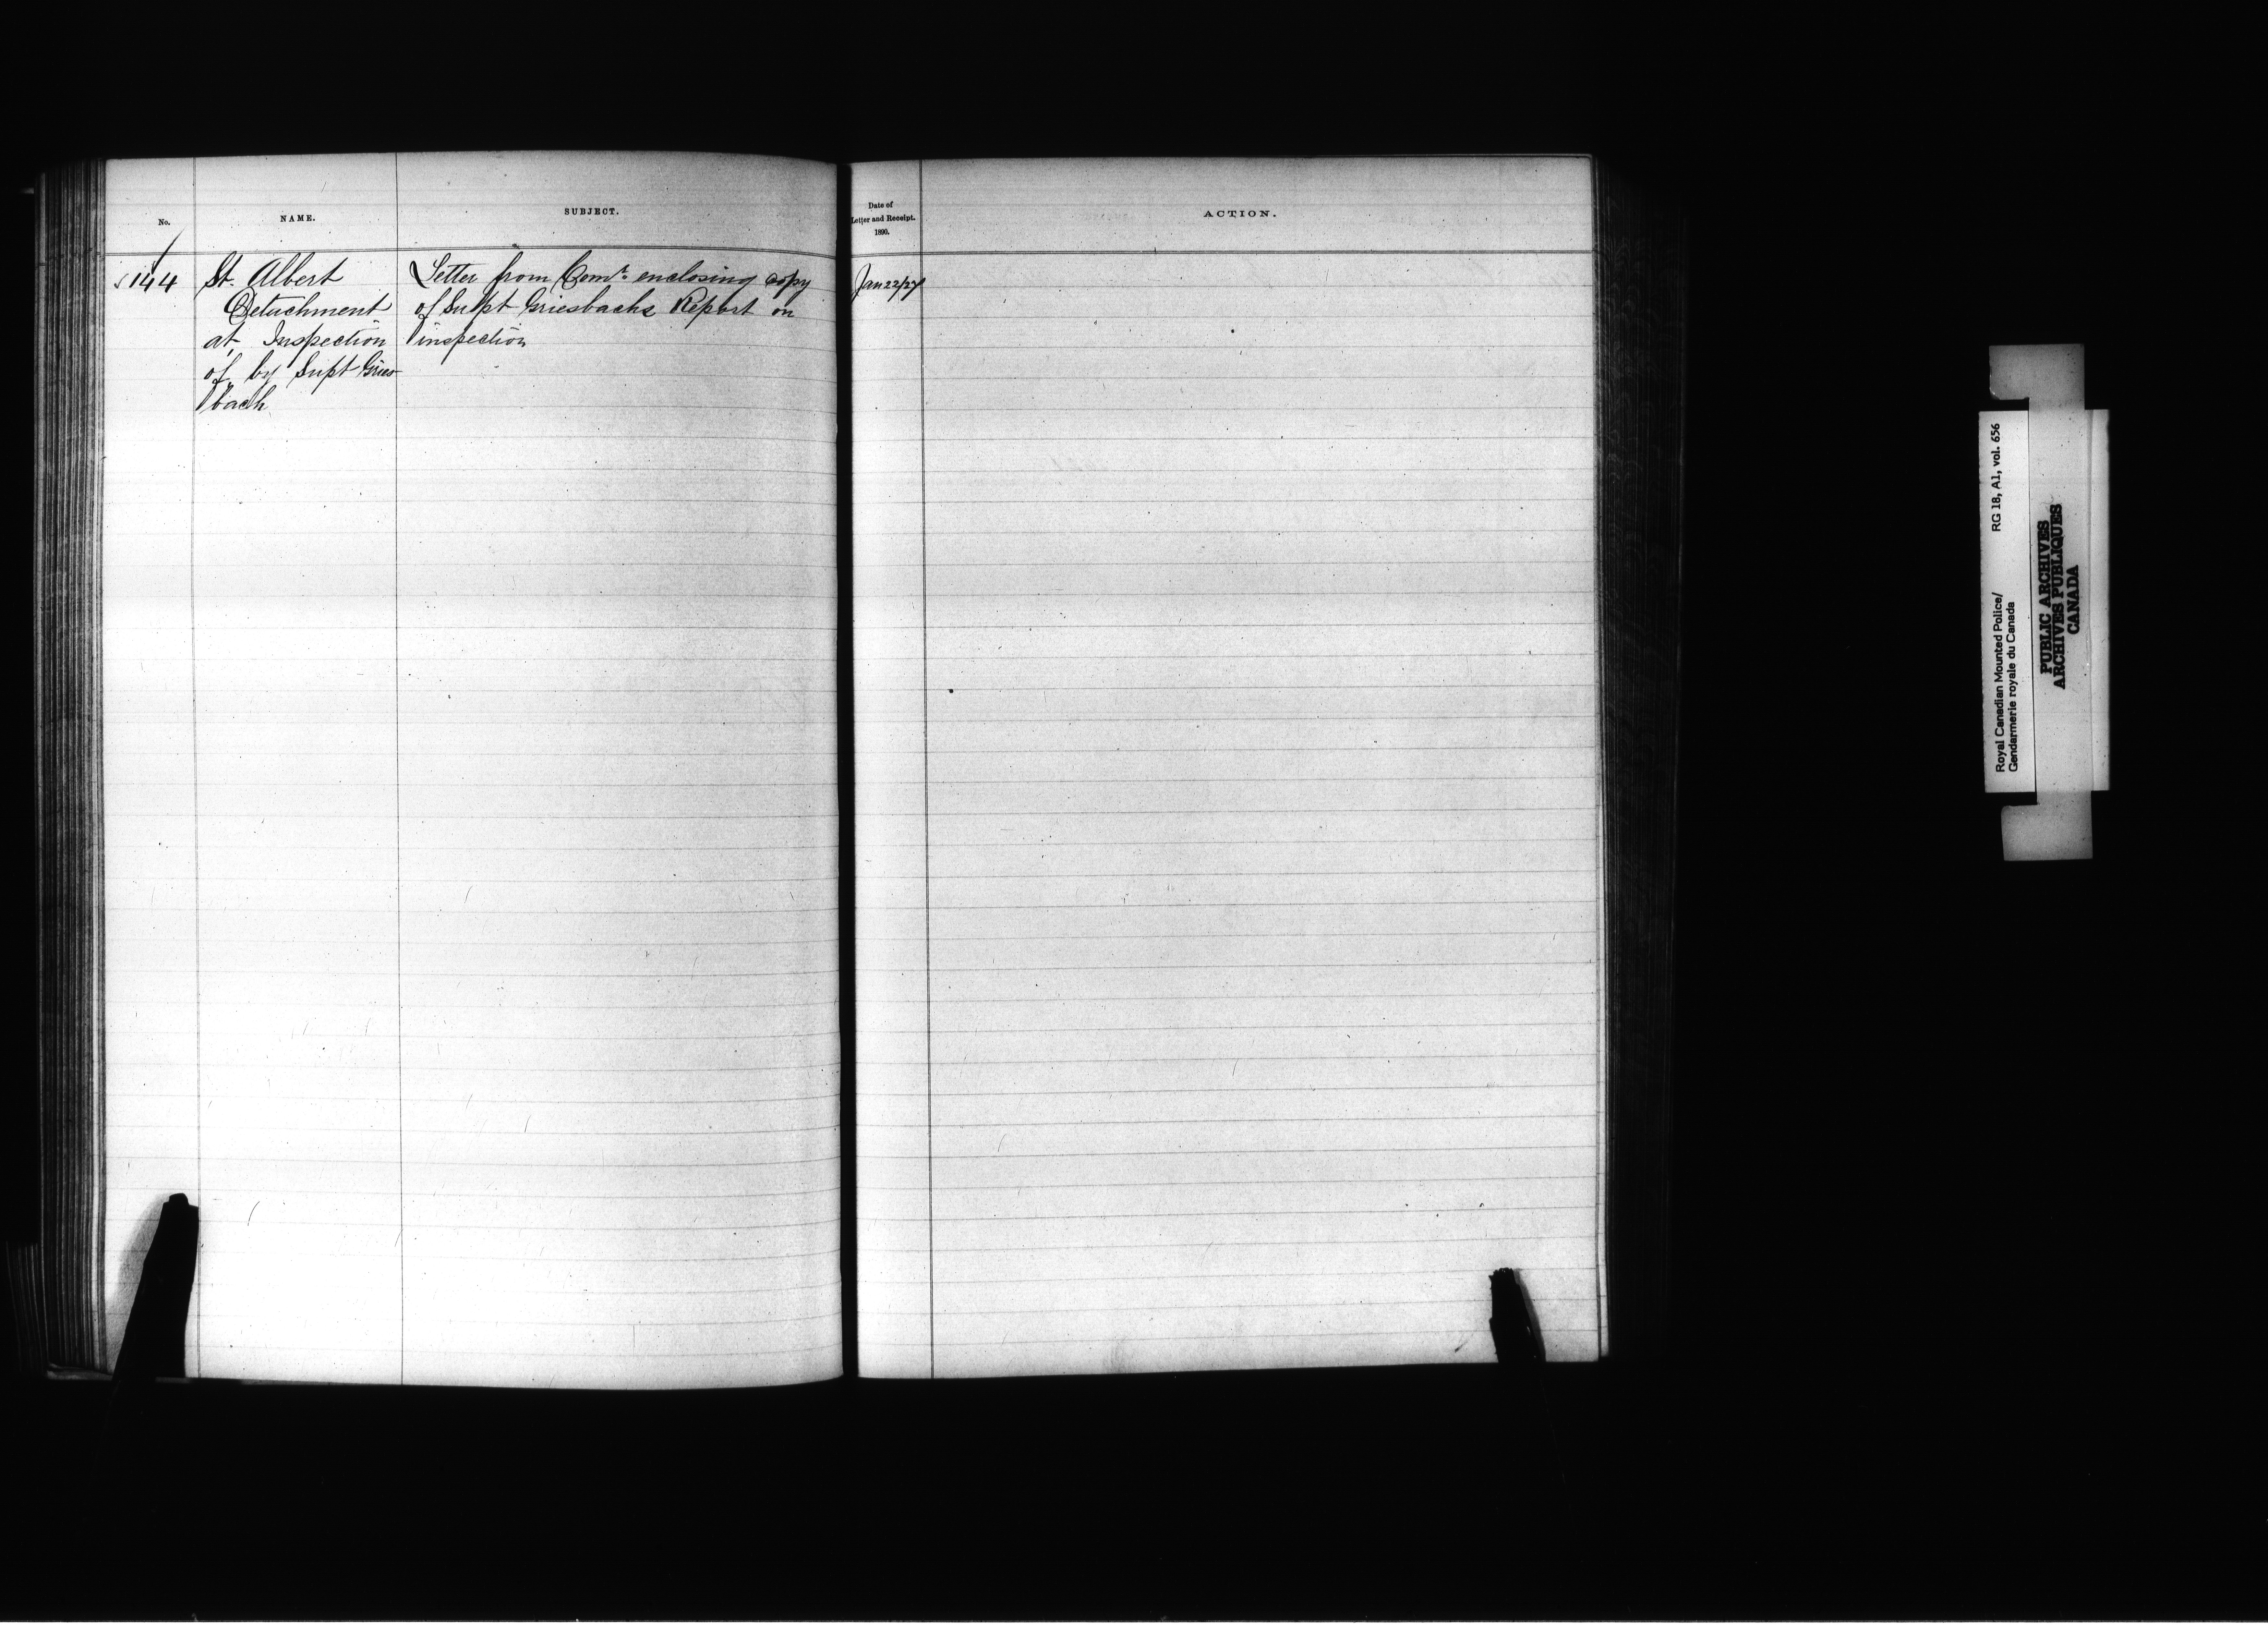 No.
NAME.
SUBJECT.
Date of
Letter and Receipt.
1890.
ACTION.
144
St. Albert
Detachment
at, Inspection
of by Supt Gries
bach
Letter from Comr. enclosing copy
of Supt Griesbachs Report on
inspection
Jan 22/27
Royal Canadian Mounted Police/
Gendarmerie royale du Canada
RG 18, A1, vol. 656
PUBLIC ARCHIVES
ARCHIVES PUBLIQUES
CANADA